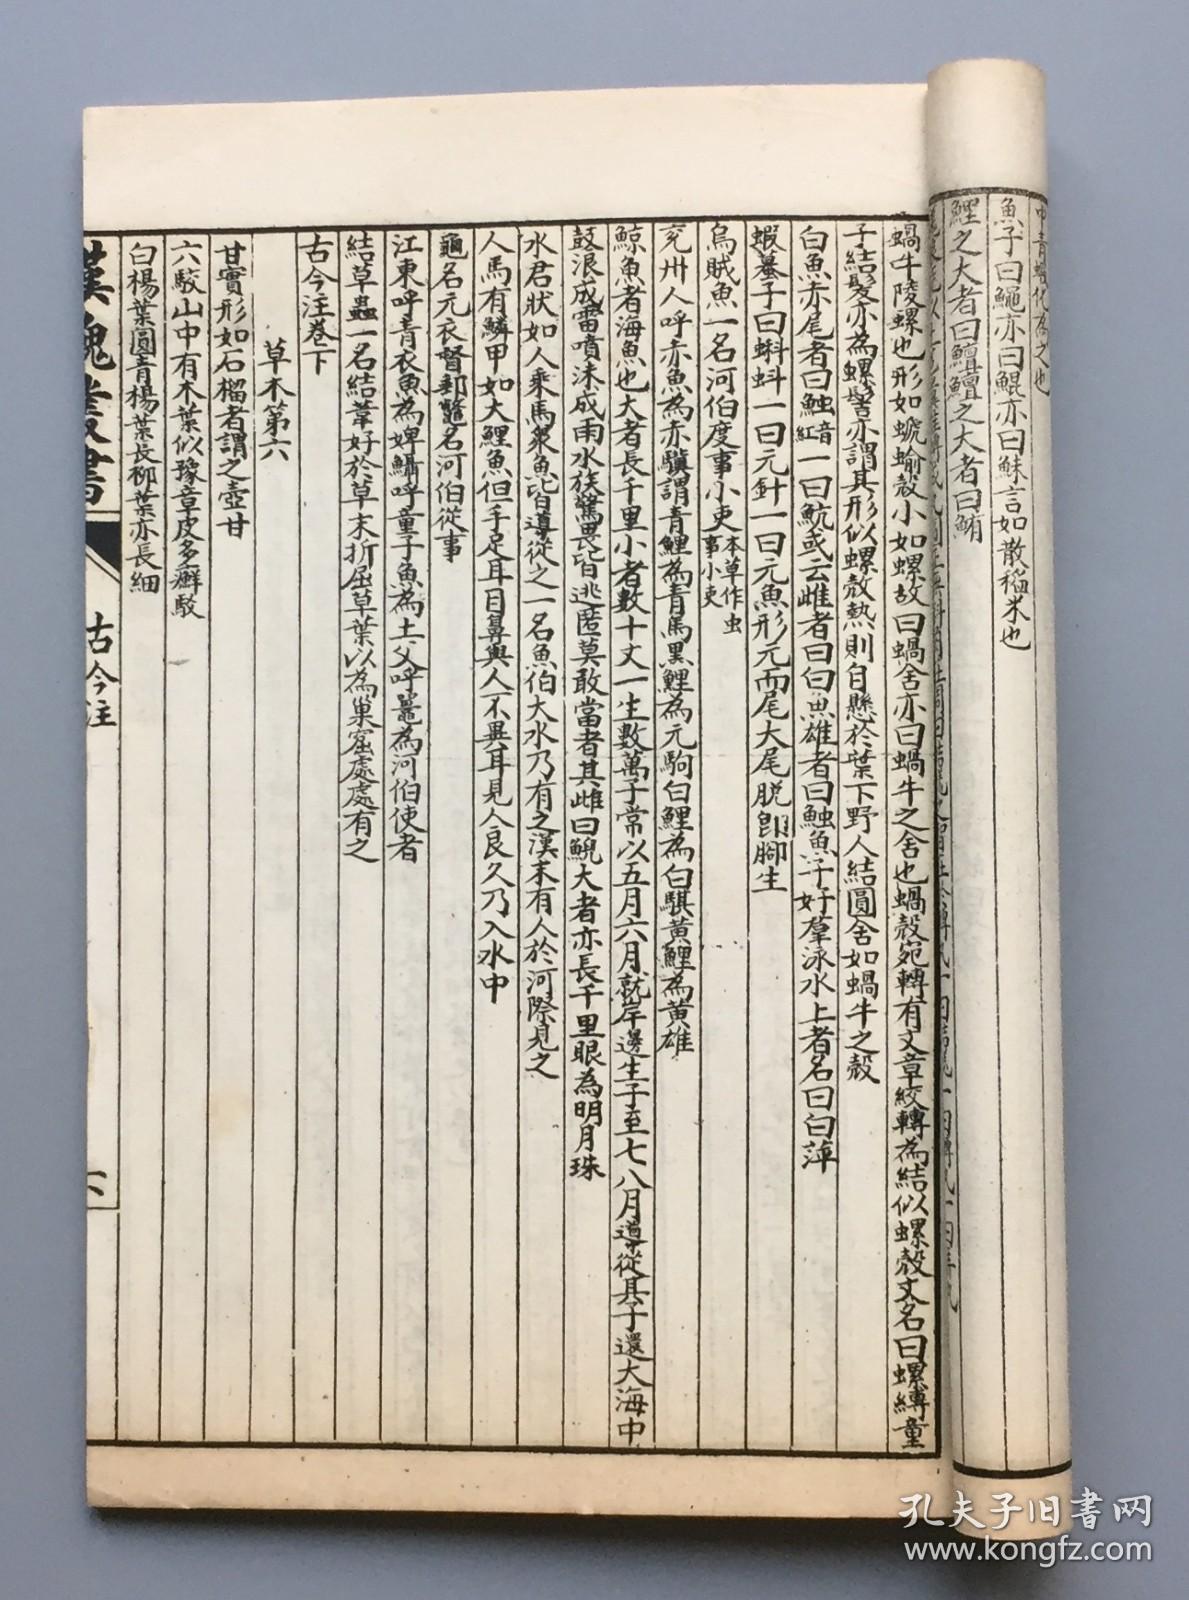 青蠅化為之也
魚子曰鱦亦曰鯤亦曰鮇言如散稻米也
鯉之大者曰鱣鱣之大者曰鮪
蝸牛陵螺也形如螔蝓殼小如螺故曰蝸舍亦曰蝸牛之舍也蝸殼宛轉有文章絞轉為結似螺殼文名曰螺縛童
子結髮亦為螺髻亦謂其形似螺殼熱則自懸於葉下野人結圓舍如蝸牛之殼
白魚赤尾者曰䱉音紅一曰魧或云雌者曰白魚雄者曰䱉魚子好羣泳水上者名曰白萍
蝦蟇子曰蝌蚪一曰元針一曰元魚形元而尾大尾脱即腳生
烏賊魚一名河伯度事小吏本草作虫事小吏
兗州人呼赤魚為赤驥謂青鯉為青馬黑鯉為元駒白鯉為白騏黃鯉為黃雄
鯨魚者海魚也大者長千里小者數十丈一生數萬子常以五月六月就岸邊生子至七八月導從其子還大海中
鼓浪成雷噴沫成雨水族驚畏皆逃匿莫敢當者其雌曰鯢大者亦長千里眼為明月珠
水君狀如人乘馬眾魚皆導從之一名魚伯大水乃有之漢末有人於河際見之
人馬有鱗甲如大鯉魚但手足耳目鼻與人不異耳見人良久乃入水中
龜名元衣督郵鼈名河伯從事
江東呼青衣魚為婢𩼫呼童子魚為土父呼鼉為河伯使者
結草蟲一名結葦好於草末折屈草葉以為巢窟處處有之
古今注卷下
草木第六
甘實形如石榴者謂之壺甘
六駮山中有木葉似豫章皮多癬駮
白楊葉圓青楊葉長柳葉亦長細
漢魏叢書
古今注
六
孔夫子旧书网
www.kongfz.com